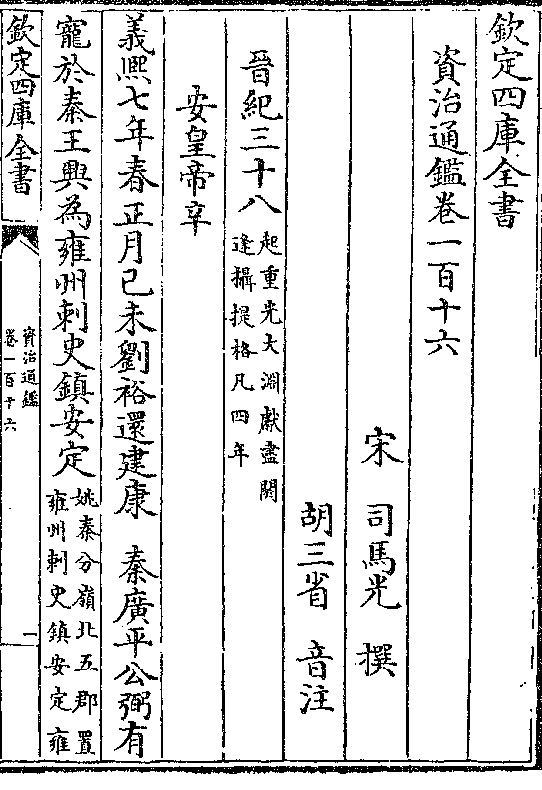 欽定四庫全書
資治通鑑卷一百十六
宋 司馬光 撰
胡三省 音注
晉紀三十八 起重光大淵獻盡閼
逢攝提格凡四年
安皇帝辛
義熙七年春正月己未劉裕還建康 秦廣平公弼有
寵於秦王興為雍州刺史鎮安定 姚秦分嶺北五郡置
雍州刺史鎮安定雍
欽定四庫全書
資治通鑑
卷一百十六
一